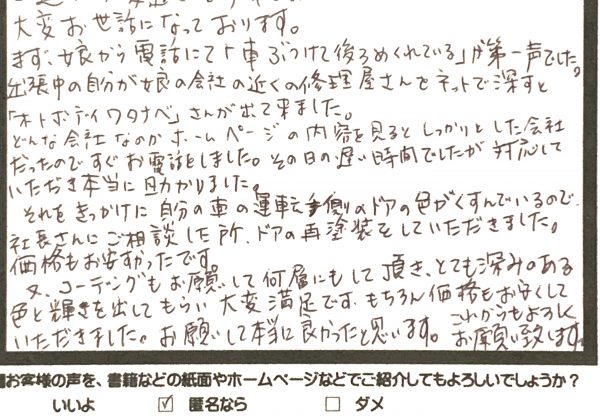 大変お世話になっております。
まず、娘から電話にて「車ぶつけて後ろめくれている」が第一声でした。
出張中の自分が娘の会社の近くの修理屋さんをネットで探すと
「オートボディワタナベ」さんが出て来ました。
どんな会社なのかホームページの内容を見ると しっかりとした会社
だったのですぐお電話をしました。その日の遅い時間でしたが対応して
いただき本当に助かりました。
それをきっかけに自分の車の運転手側のドアの色がくすんでいるので、
社長さんにご相談した所、ドアの再塗装をしていただきました。
価格もお安すかったです。
又、コーディングもお願いして何層にもして頂き、とても深みのある
色と輝きを出してもらい 大変満足です。もちろん価格もお安くして
いただきました。お願いして本当に良かったと思います。これからもよろしく
お願い致します
お客様の声を、書籍などの紙面やホームページなどでご紹介してもよろしいでしょうか?
いいよ ☑ 匿名なら □ ダメ